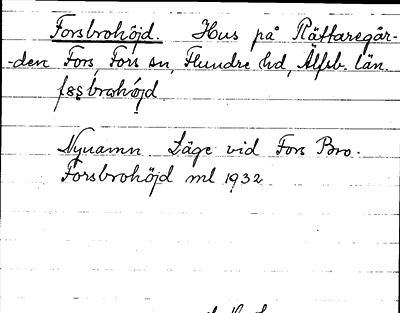 Forsbrohöjd. Hus på Rättaregår-
-den Fors, Fors sn, Flundre hd, Älfsb. län.
fɷsbrohöjd
Nynamn Läge vid Fors Bro.
Forsbrohöjd ml 1932